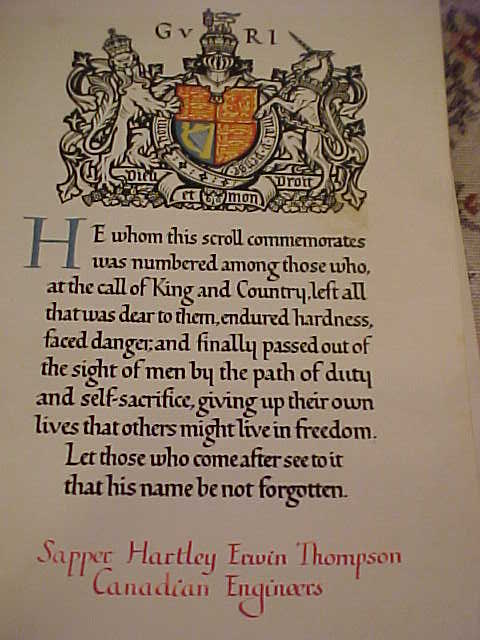 G V R I
Dieu et mon Droit
HE whom this scroll commemorates
was numbered among those who,
at the call of King and Country, left all
that was dear to them, endured hardness,
faced danger, and finally passed out of
the sight of men by the path of duty
and self-sacrifice, giving up their own
lives that others might live in freedom.
Let those who come after see to it
that his name be not forgotten.
Sapper Hartley Erwin Thompson
Canadian Engineers